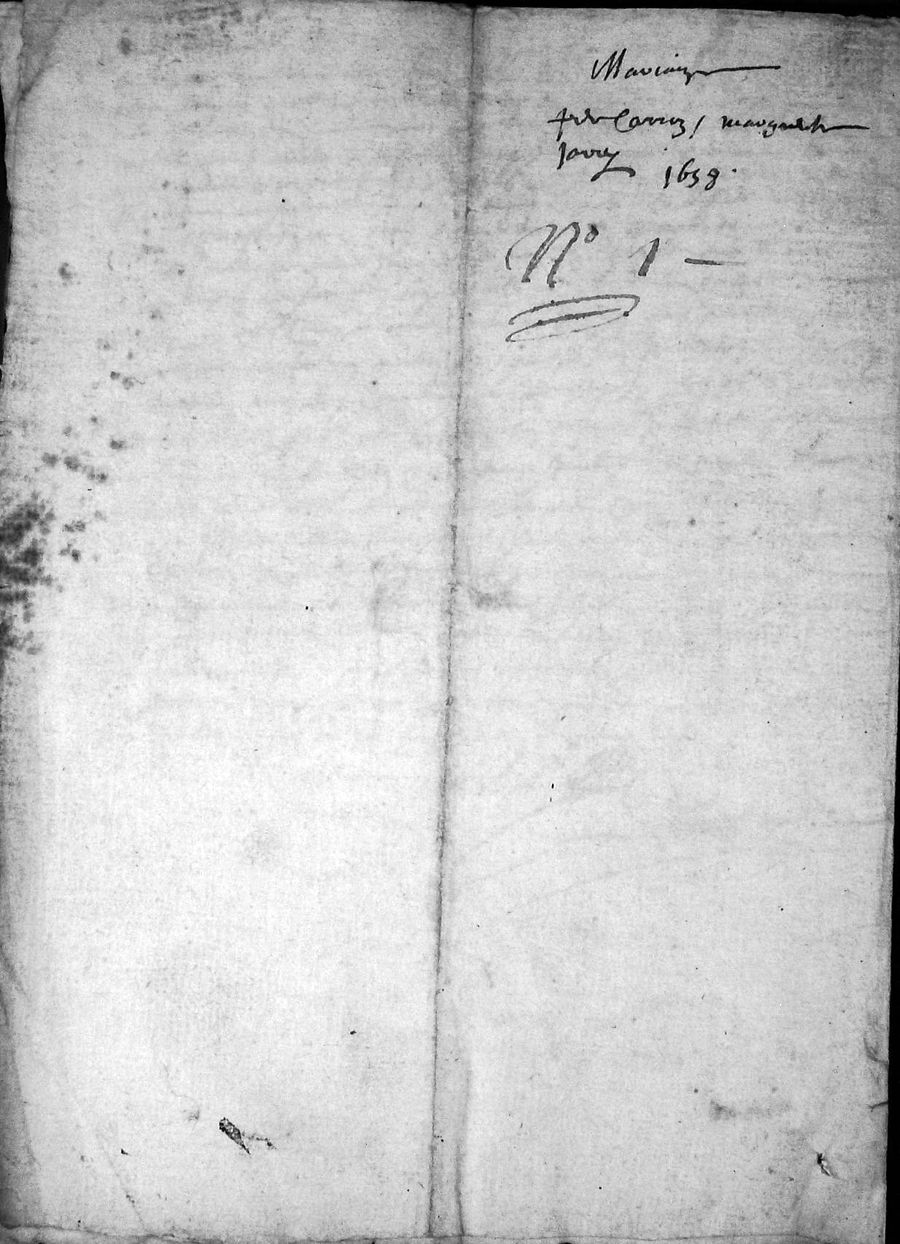 Mariaige
Carrez / marguerite
Jarry 1658.
N° 1 —